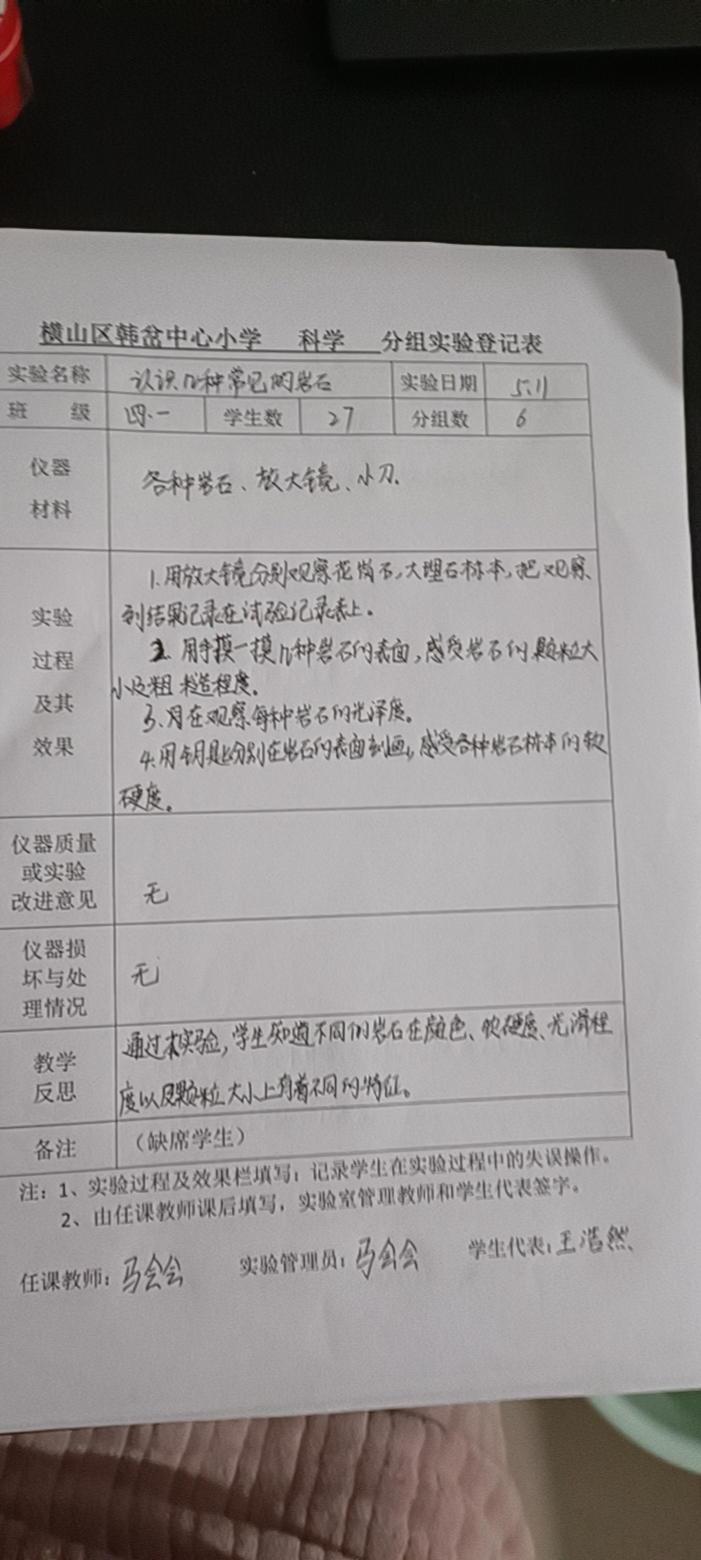 横山区韩岔中心小学 科学 分组实验登记表
实验名称 认识几种常见的岩石 实验日期 5.11
班 级 四.一 学生数 27 分组数 6
仪器
材料
各种岩石、放大镜、小刀.
实验
过程
及其
效果
1.用放大镜分别观察花岗石,大理石标本,把观察
到结果记录在试验记录表上.
2. 用手摸一摸几种岩石的表面,感受岩石的颗粒大
小及粗糙程度.
3.用在观察每种岩石的光泽度。
4.用钥匙分别在岩石的表面刻画,感受各种岩石标本的软
硬度。
仪器质量
或实验
改进意见
无
仪器损
坏与处
理情况
无
教学
反思
通过本实验,学生知道不同的岩石在颜色、软硬度、光滑程
度以及颗粒大小上有着不同的特征。
备注 (缺席学生)
注:1、实验过程及效果栏填写:记录学生在实验过程中的失误操作。
2、由任课教师课后填写,实验室管理教师和学生代表签字。
任课教师:马会会 实验管理员:马会会 学生代表:王浩然